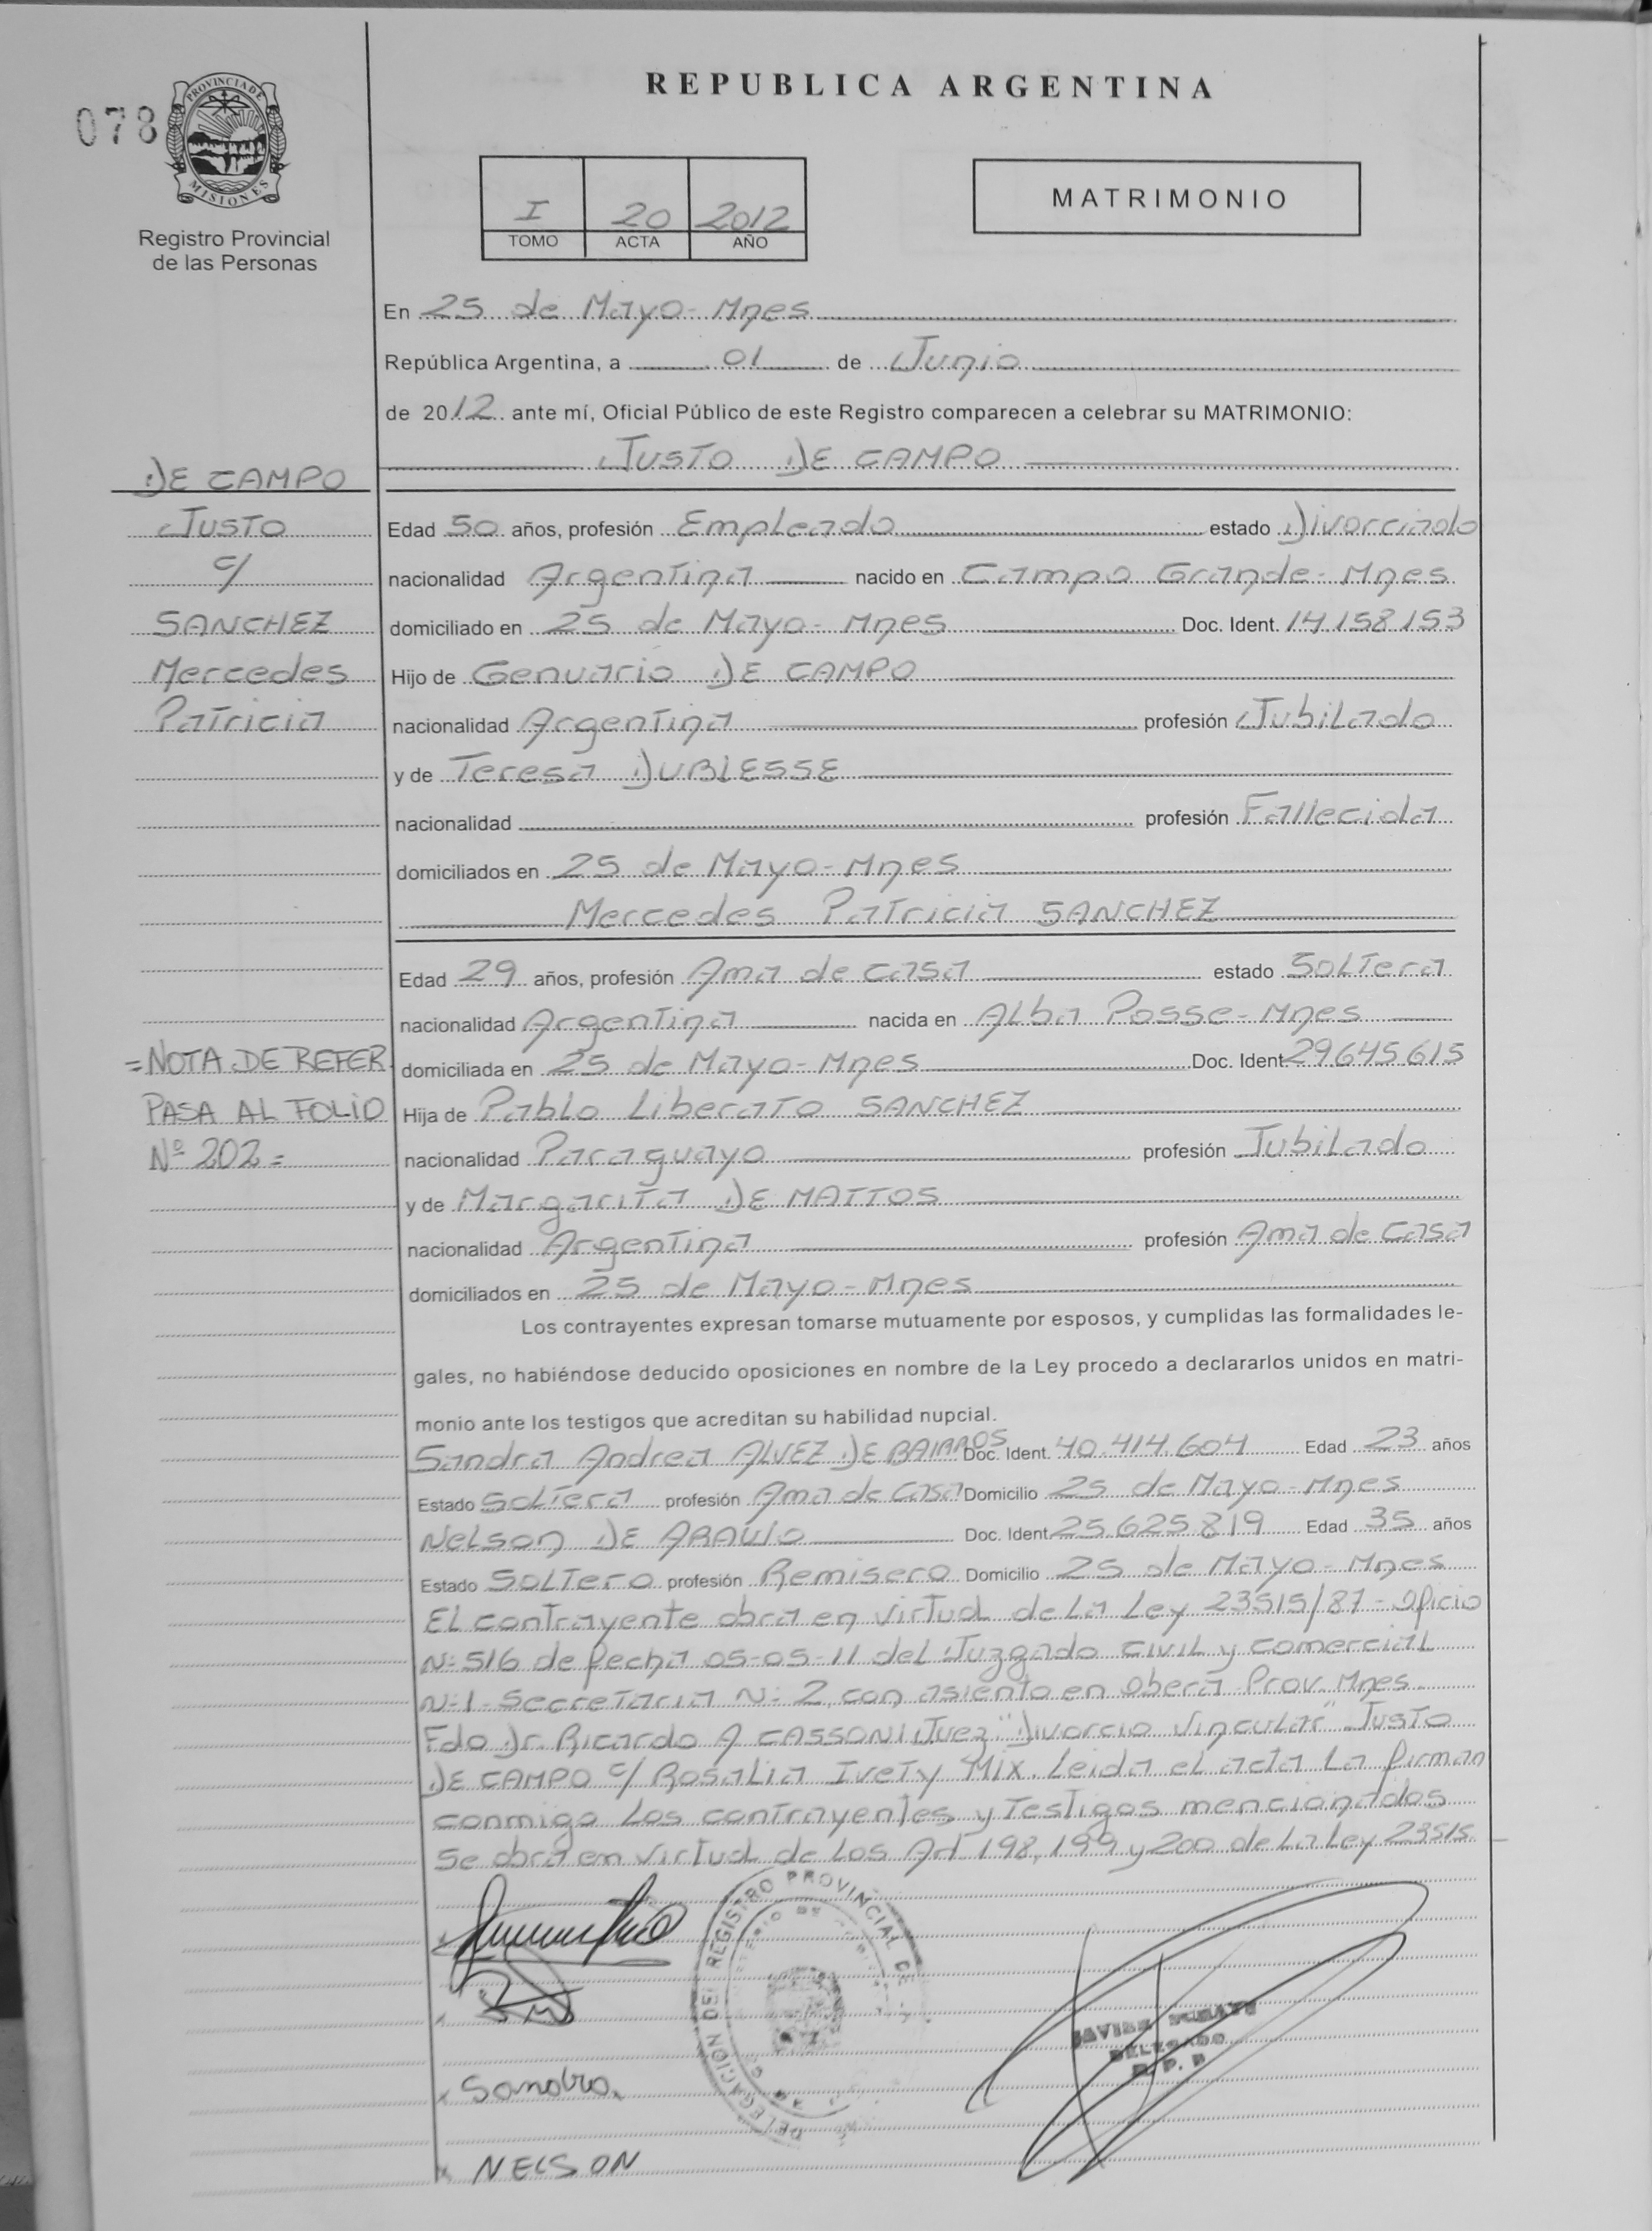 078
PROVINCIA DE
MISIONES
Registro Provincial
de las Personas
REPUBLICA ARGENTINA
I 20 2012
TOMO ACTA AÑO
MATRIMONIO
En 25 de Mayo - Mnes
República Argentina, a 01 de Junio
de 2012 ante mí, Oficial Público de este Registro comparecen a celebrar su MATRIMONIO:
JUSTO DE CAMPO
DE CAMPO
JUSTO
c/
SANCHEZ
Mercedes
Patricia
Edad 50 años, profesión Empleado estado Divorciado
nacionalidad Argentina nacido en Campo Grande - Mnes
domiciliado en 25 de Mayo - Mnes Doc. Ident. 14.158.153
Hijo de Genuario DE CAMPO
nacionalidad Argentina profesión Jubilado
y de Teresa DUBLESSE
nacionalidad profesión Fallecida
domiciliados en 25 de Mayo - Mnes
Mercedes Patricia SANCHEZ
Edad 29 años, profesión Ama de casa estado Soltera
nacionalidad Argentina nacida en Alba Posse - Mnes
domiciliada en 25 de Mayo - Mnes Doc. Ident. 29.645.615
Hija de Pablo Liberato SANCHEZ
nacionalidad Paraguayo profesión Jubilado
y de Margarita DE MATTOS
nacionalidad Argentina profesión Ama de Casa
domiciliados en 25 de Mayo - Mnes
= NOTA DE REFER
PASA AL FOLIO
Nº 202 =
Los contrayentes expresan tomarse mutuamente por esposos, y cumplidas las formalidades le-
gales, no habiéndose deducido oposiciones en nombre de la Ley procedo a declararlos unidos en matri-
monio ante los testigos que acreditan su habilidad nupcial.
Sandra Andrea ALVEZ DE BAIRROS Doc. Ident. 40.414.604 Edad 23 años
Estado Soltera profesión Ama de Casa Domicilio 25 de Mayo - Mnes
Nelson DE ARAUJO Doc. Ident. 25.625.819 Edad 35 años
Estado Soltero profesión Remisero Domicilio 25 de Mayo - Mnes
El contrayente obra en virtud de la Ley 23515/87 - Oficio
N: 516 de fecha 05-05-11 del Juzgado civil y comercial
N: 1 - Secretaria N: 2, con asiento en Obera - Prov. Mnes.
Fdo Dr. Ricardo A CASSONI Juez "Divorcio Vincular" JUSTO
DE CAMPO c/ Rosalia Ivety MIX. Leida el acta la firman
conmigo los contrayentes y testigos mencionados
Se obra em virtud de los Art 198, 199 y 200 de la Ley 23515.
DELEGACION DEL REGISTRO PROVINCIAL DE
DELEGADO
Sandra
NELSON